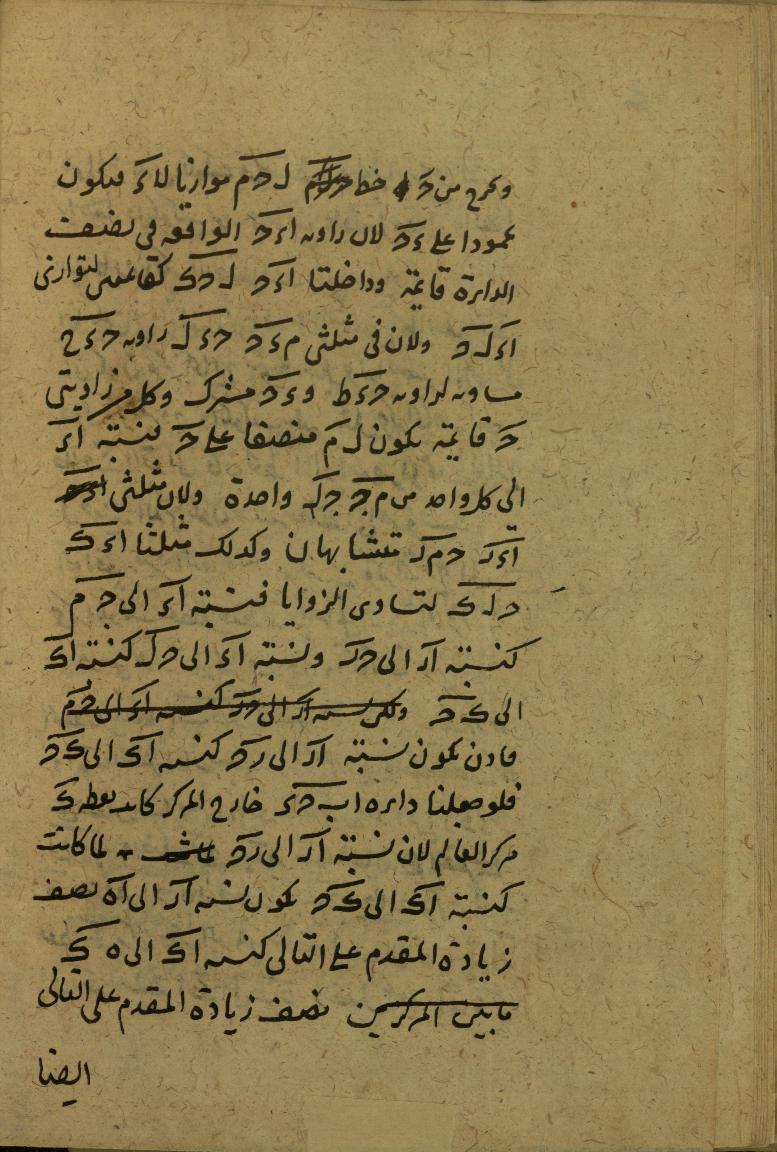 ونخرج من حَ خط لَ حَ مَ موازيا لاءَ فيكون
عمودا على ءَ حَ لان زاويه اءَ حَ الواقعه في نصف
الدايرة قايمة وداخلتا اءَ حَ لَ حَ ءَ كقائمتين لتوازى
اءَ لَ حَ ولان في مثلثى مءَ حَ حءَ لَ زاويه حءَ ح
مساويه لزاويه حءَ ط وءَ حَ مشترك وكل من زاويتى
حَ قايمة يكون لَ مَ منصفا على حَ فنسبة اءَ
الى كل واحد من مَ حَ حَ لَ واحدة ولان مثلثى
اءَ رَ حمَ رَ متشابهان وكذلك مثلثا اءَ كَ
حَ لَ كَ لتساوى الزوايا فنسبة اءَ الى حَ مَ
كنسبة ارَ الى حرَ ونسبة اءَ الى حَ لَ كنسبة اكَ
الى كَ حَ
فاذن يكون نسبة ارَ الى رَ حَ كنسبه اكَ الى كَ حَ
فلو جعلنا دايره اب حَ ءَ خارج المركز كانت نقطه كَ
مركز العالم لان نسبة ارَ الى رَ حَ لما كانت
كنسبة اكَ الى كَ حَ يكون نسبه ارَ الى اه نصف
زيادة المقدم على التالى كنسبه اكَ الى ه كَ
نصف زيادة المقدم على التالى
ايضا